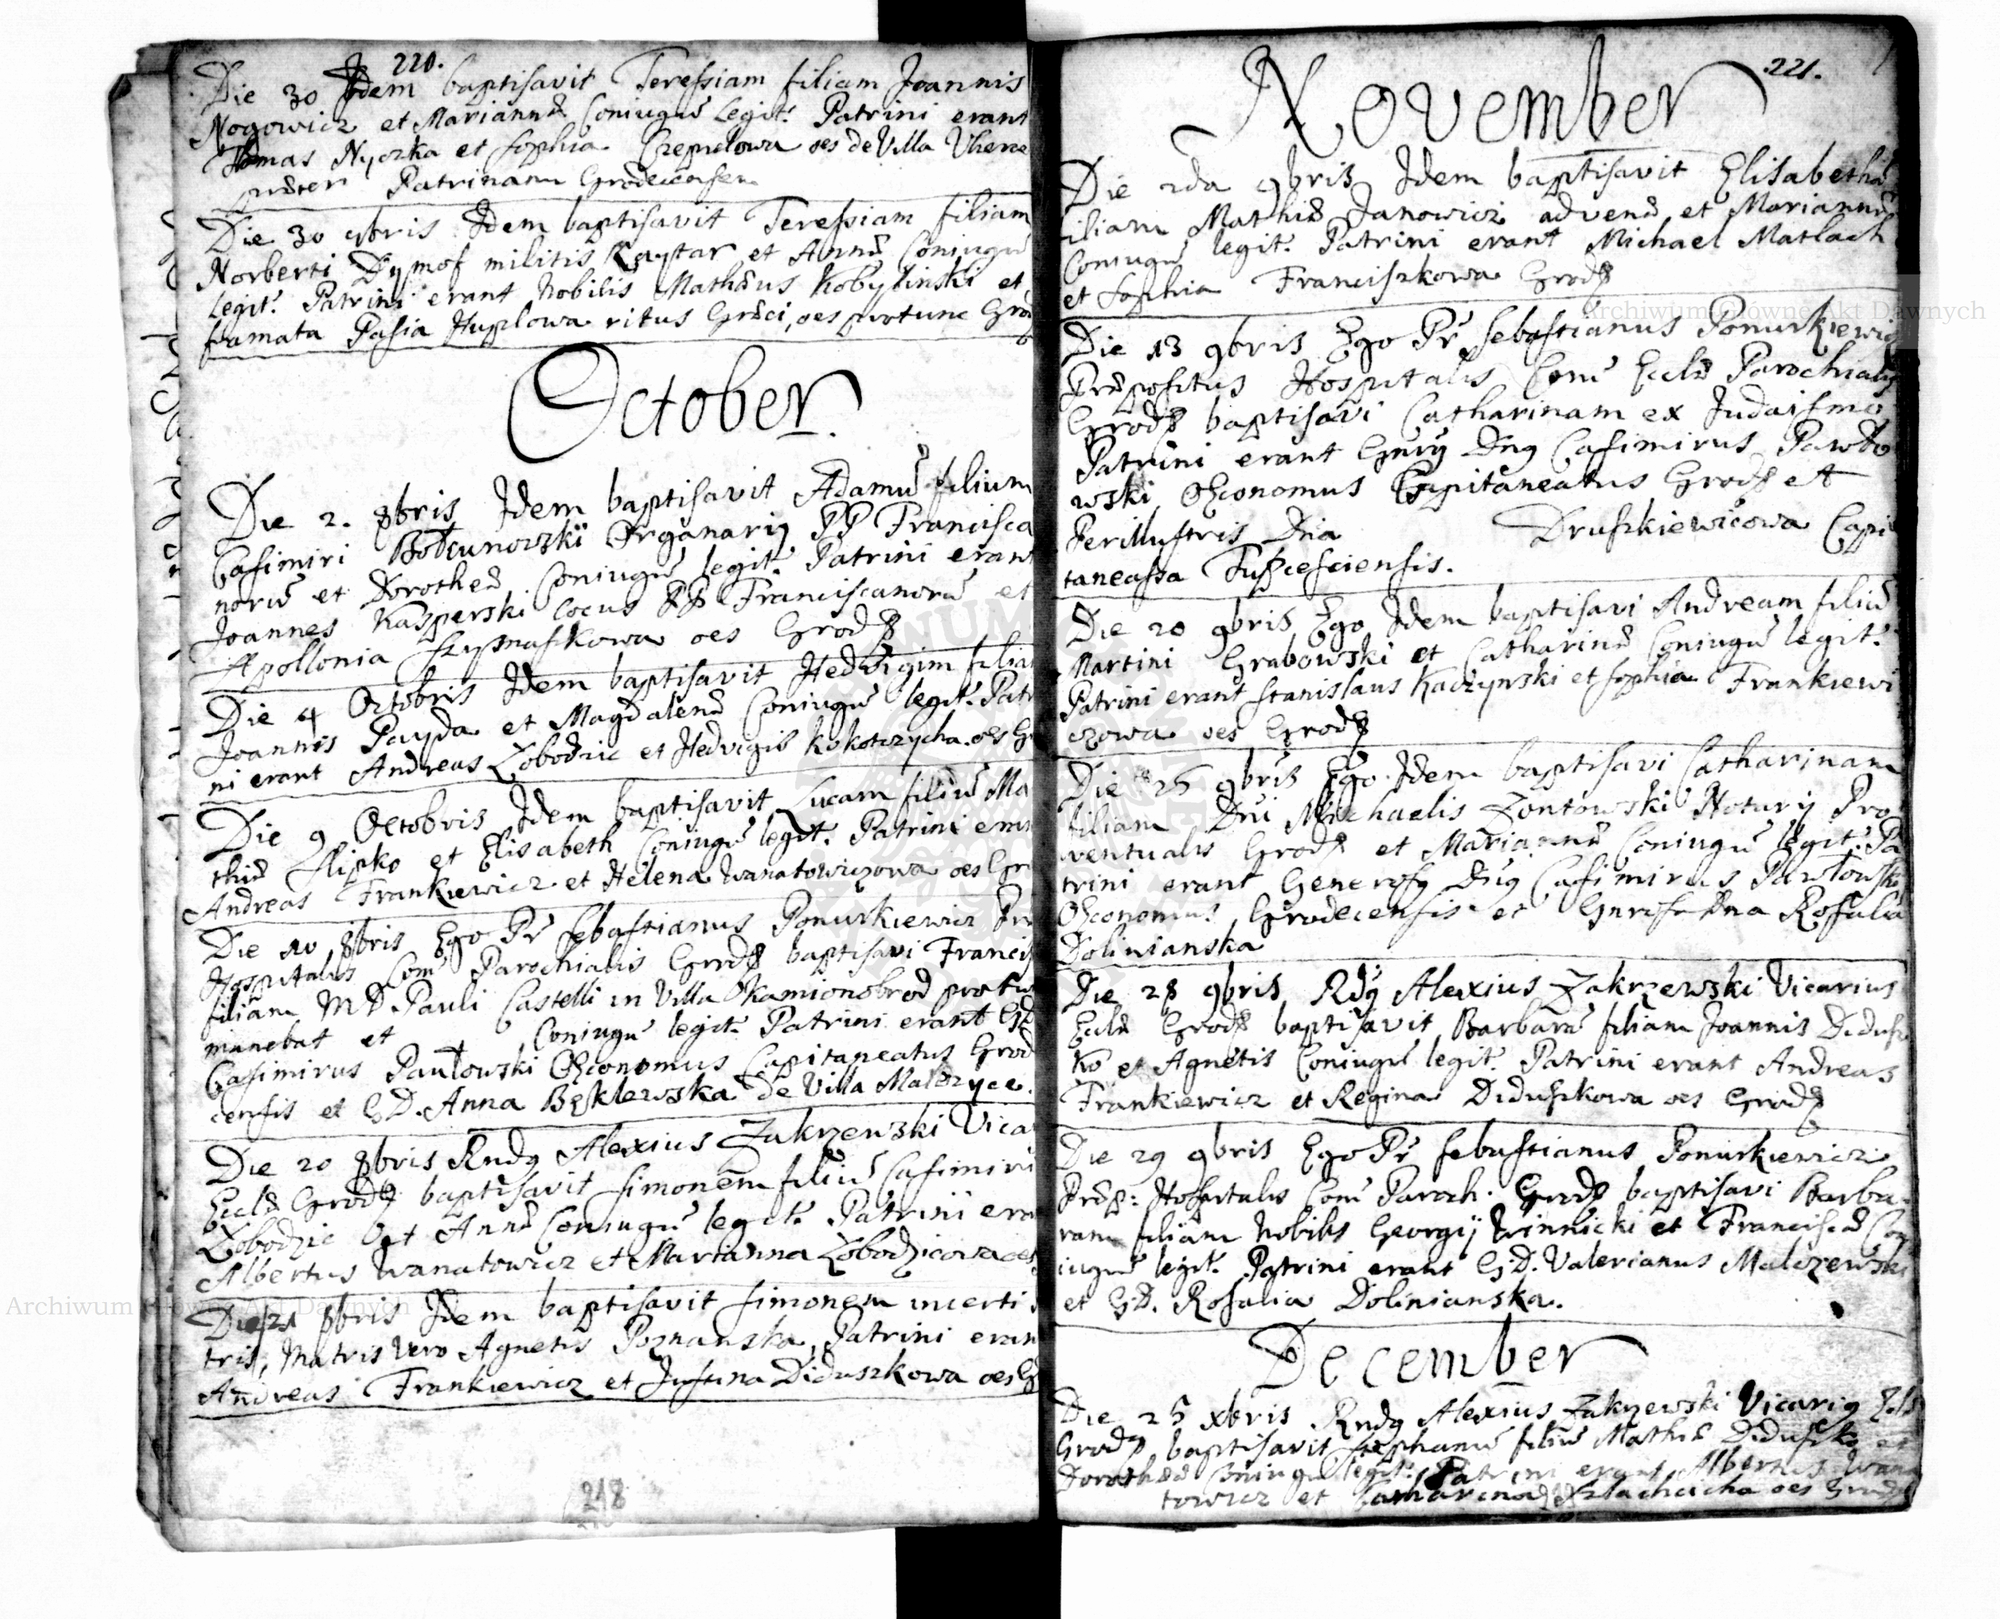 220.
Die 30 Idem baptisavit Teressiam filiam Joannis
Nogowicz et Mariannæ Coniugū Legit: Patrini erant
Thomas Nyczka et Sophia Czepielowa oēs de Villa Vhere
præter Patrinam Grodecensem
Die 30 9bris Idem baptisavit Teressiam filiam
Norberti Dymof militis Raytar et Annæ Coniugū
Legit: Patrini erant Nobilis Mathæus Kobyliński et
famata Pasia Huplowa ritus Græci, oēs protunc Grod
October.
Die 2. 8bris Idem baptisavit Adamū filium
Casimiri Bołtunowski Organarij PP Francisca
norū et Dorotheæ Coniugū legit: Patrini erant
Joannes Kasperski Cocus PP Franciscanorū et
Apollonia Szymaskowa oēs Grod
Die 4 Octobris Idem baptisavit Hedwigim filiam
Joannis Payda et Magdalenæ Coniugū legit: Patri
ni erant Andreas Łobodzic et Hedvigis Kokotczycha oēs Gr
Die 9 Octobris Idem baptisavit Lucam filiū Ma
thiæ Slipko et Elisabeth Coniugū legit: Patrini erant
Andreas Frankiewicz et Helena Wanatowiczowa oēs Gr
Die 10 8bris Ego Pr Sebastianus Ponurkiewicz Præ
Hospitalis Comē Parochialis Grod baptisavi Francis
filiam MD Pauli Castelli in Villa Kamionobrod protunc
manebat et Coniugū legit: Patrini erant
Casimirus Pawłowski Œconomus Capitaneatus Grod
censis et GD. Anna Bęklewska de Villa Malczyce.
Die 20 8bris Rndg Alexius Zakrzewski Vica
Ecclæ Grod baptisavit Simonem filiū Casimiri
Łobodzic et Annæ Coniugū legit: Patrini erant
Albertus Wanatowicz et Marianna Łobodzicowa oēs
Die 21 8bris Idem baptisavit Simonem incerti
tris, Matris vero Agnetis Poznanska, Patrini erant
Andreas Frankiewicz et Justina Diduszkowa oēs G
218
221.
November
Die 2da 9bris Idem baptisavit Elisabethā
filiam Mathiæ Janowicz advenæ et Mariannæ
Coniugū legit: Patrini erant Michael Matlach
et Sophia Franciszkowa Grod
Die 13 9bris Ego Pr Sebastianus Ponurkiewicz
Præpositus Hospitalis Comē Ecclæ Parochialis
Grod baptisavi Catharinam ex Judaismo
Patrini erant Gnrs Dns Casimirus Pawło
wski Œconomus Capitaneatus Grod et
Perillustris Dna Druszkiewicowa Capi
taneassa
Die 20 9bris Ego Idem baptisavi Andream filiū
Martini Grabowski et Catharinæ Coniugū legit:
Patrini erant Stanislaus Kaczynski et Sophia Frankiewi
czowa oēs Grod
Die 26 9bris Ego Idem baptisavi Catharinam
filiam Dni Michaelis Zontowski Notarij Pro
ventualis Grod et Mariannæ Coniugū legit: Pa
trini erant Generosg Dng Casimirus Pawłowski
Œconomus Grodecensis et Gnrosa Dna Rosalia
Dolinianska
Die 28 9bris Rdg Alexius Zakrzewski Vicarius
Ecclæ Grod baptisavit Barbarā filiam Joannis Didusz
ko et Agnetis Coniugū legit: Patrini erant Andreas
Frankiewicz et Regina Diduszkowa oēs Grod
Die 29 9bris Ego Pr Sebastianus Ponurkiewicz
Præp: Hospitalis Comē Paroch. Grod baptisavi Barba
ram filiam Nobilis Georgij Winnicki et Franciscæ Con
iugū legit: Patrini erant G.D. Valerianus Malczewski
et G.D. Rosalia Dolinianska.
December
Die 25 Xbris Rndg Alexius Zakrzewski Vicarig Ecclæ
Grod baptisavit Stephanū filiū Mathiæ Diduszko et
Dorotheæ Coniugū legit: Patrini erant Albertus Wana
towicz et Catharina Szlachcicha oēs Grod
Archiwum Główne Akt Dawnych
Archiwum Główne Akt Dawnych